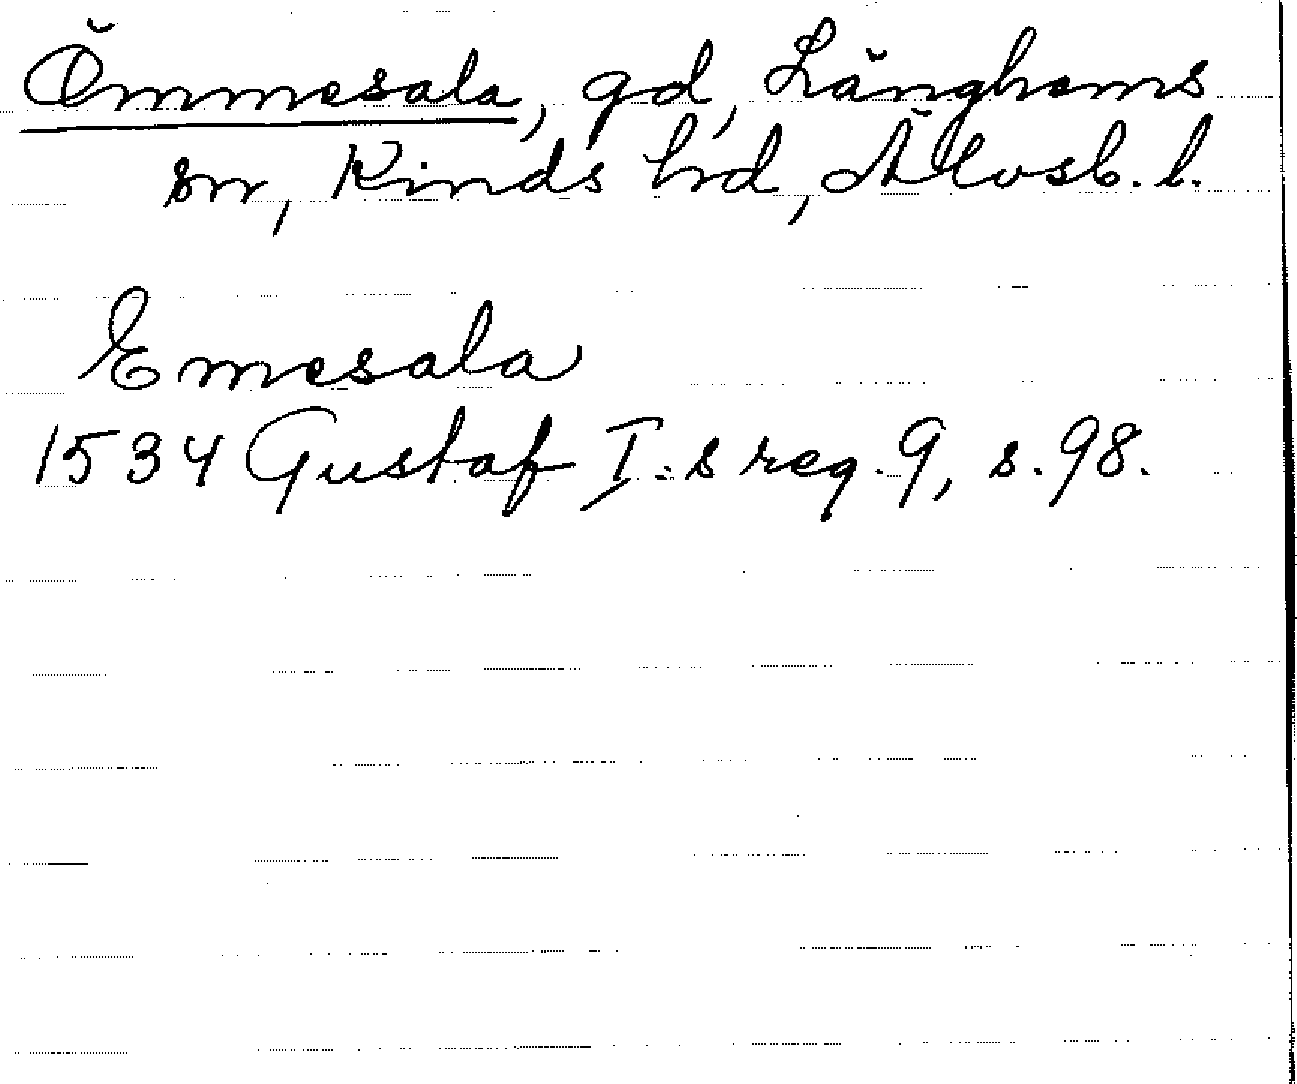 Ömmesala, gd, Länghems
sn, Kinds hd, Älvsb. l.
Emesala
1534 Gustaf I:s reg. 9, s. 98.